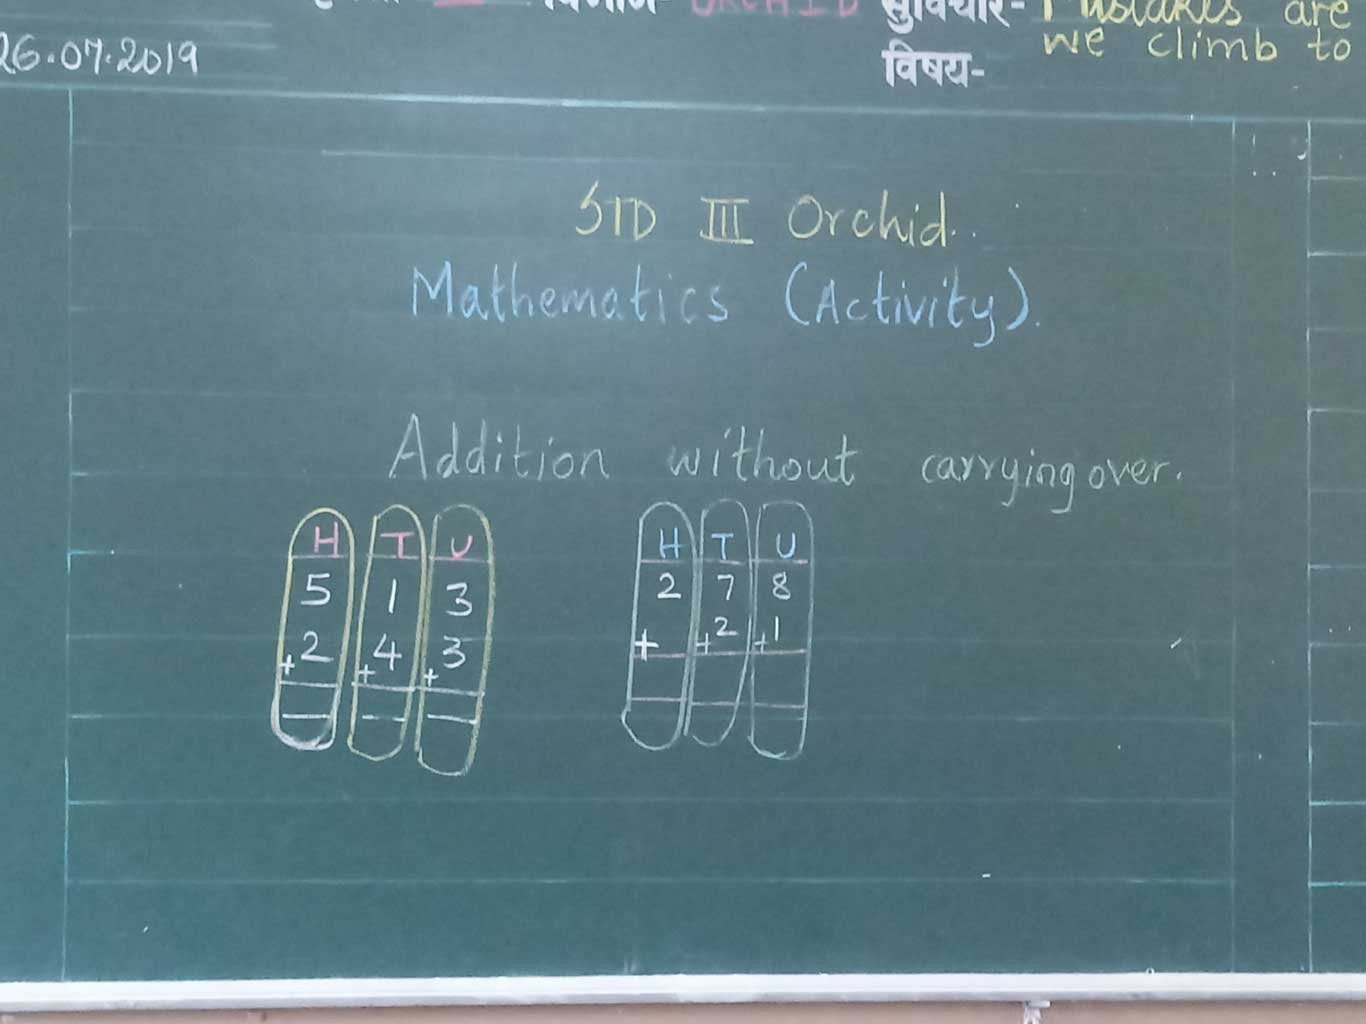 विभाग- ORCHID सुविचार- Mistakes are
26.07.2019 we climb to
विषय-
STD III Orchid.
Mathematics (Activity).
Addition without carrying over.
H T U H T U
5 1 3 2 7 8
+2 +4 +3 + +2 +1